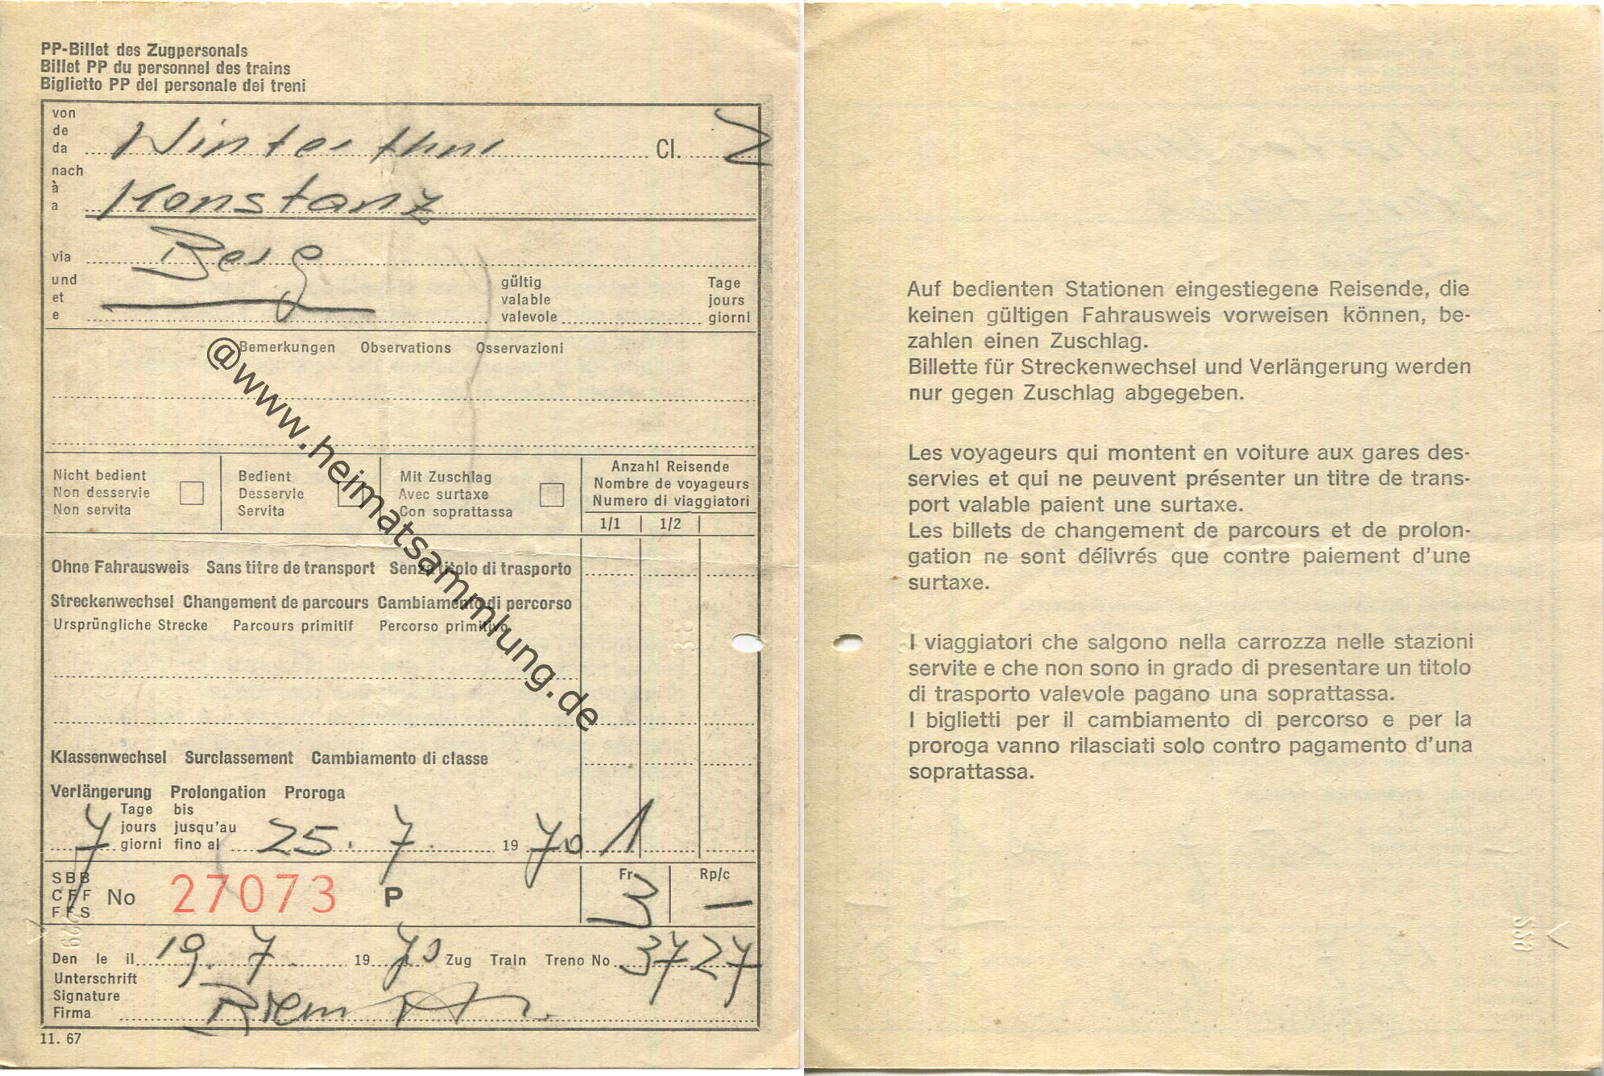 PP-Billet des Zugpersonals
Billet PP du personnel des trains
Biglietto PP del personale dei treni
von
de
da Winterthur Cl. 2
nach
à
a Konstanz
via Berg
und
et
e
gültig Tage
valable jours
valevole giorni
Bemerkungen Observations Osservazioni
@www.heimatsammlung.de
Nicht bedient
Non desservie
Non servita
Bedient
Desservie
Servita
Mit Zuschlag
Avec surtaxe
Con soprattassa
Anzahl Reisende
Nombre de voyageurs
Numero di viaggiatori
1/1 1/2
Ohne Fahrausweis Sans titre de transport Senza titolo di trasporto
Streckenwechsel Changement de parcours Cambiamento di percorso
Ursprüngliche Strecke Parcours primitif Percorso primitivo
Klassenwechsel Surclassement Cambiamento di classe
Verlängerung Prolongation Proroga
Tage bis
jours jusqu'au
7 giorni fino al 25. 7. 1970 1
SBB
CFF
FFS
No 27073 P
Fr. Rp/c
3 —
Den le il 19. 7. 1970 Zug Train Treno No 3727
Unterschrift
Signature
Firma
11. 67
Auf bedienten Stationen eingestiegene Reisende, die
keinen gültigen Fahrausweis vorweisen können, be-
zahlen einen Zuschlag.
Billette für Streckenwechsel und Verlängerung werden
nur gegen Zuschlag abgegeben.
Les voyageurs qui montent en voiture aux gares des-
servies et qui ne peuvent présenter un titre de trans-
port valable paient une surtaxe.
Les billets de changement de parcours et de prolon-
gation ne sont délivrés que contre paiement d'une
surtaxe.
I viaggiatori che salgono nella carrozza nelle stazioni
servite e che non sono in grado di presentare un titolo
di trasporto valevole pagano una soprattassa.
I biglietti per il cambiamento di percorso e per la
proroga vanno rilasciati solo contro pagamento d'una
soprattassa.